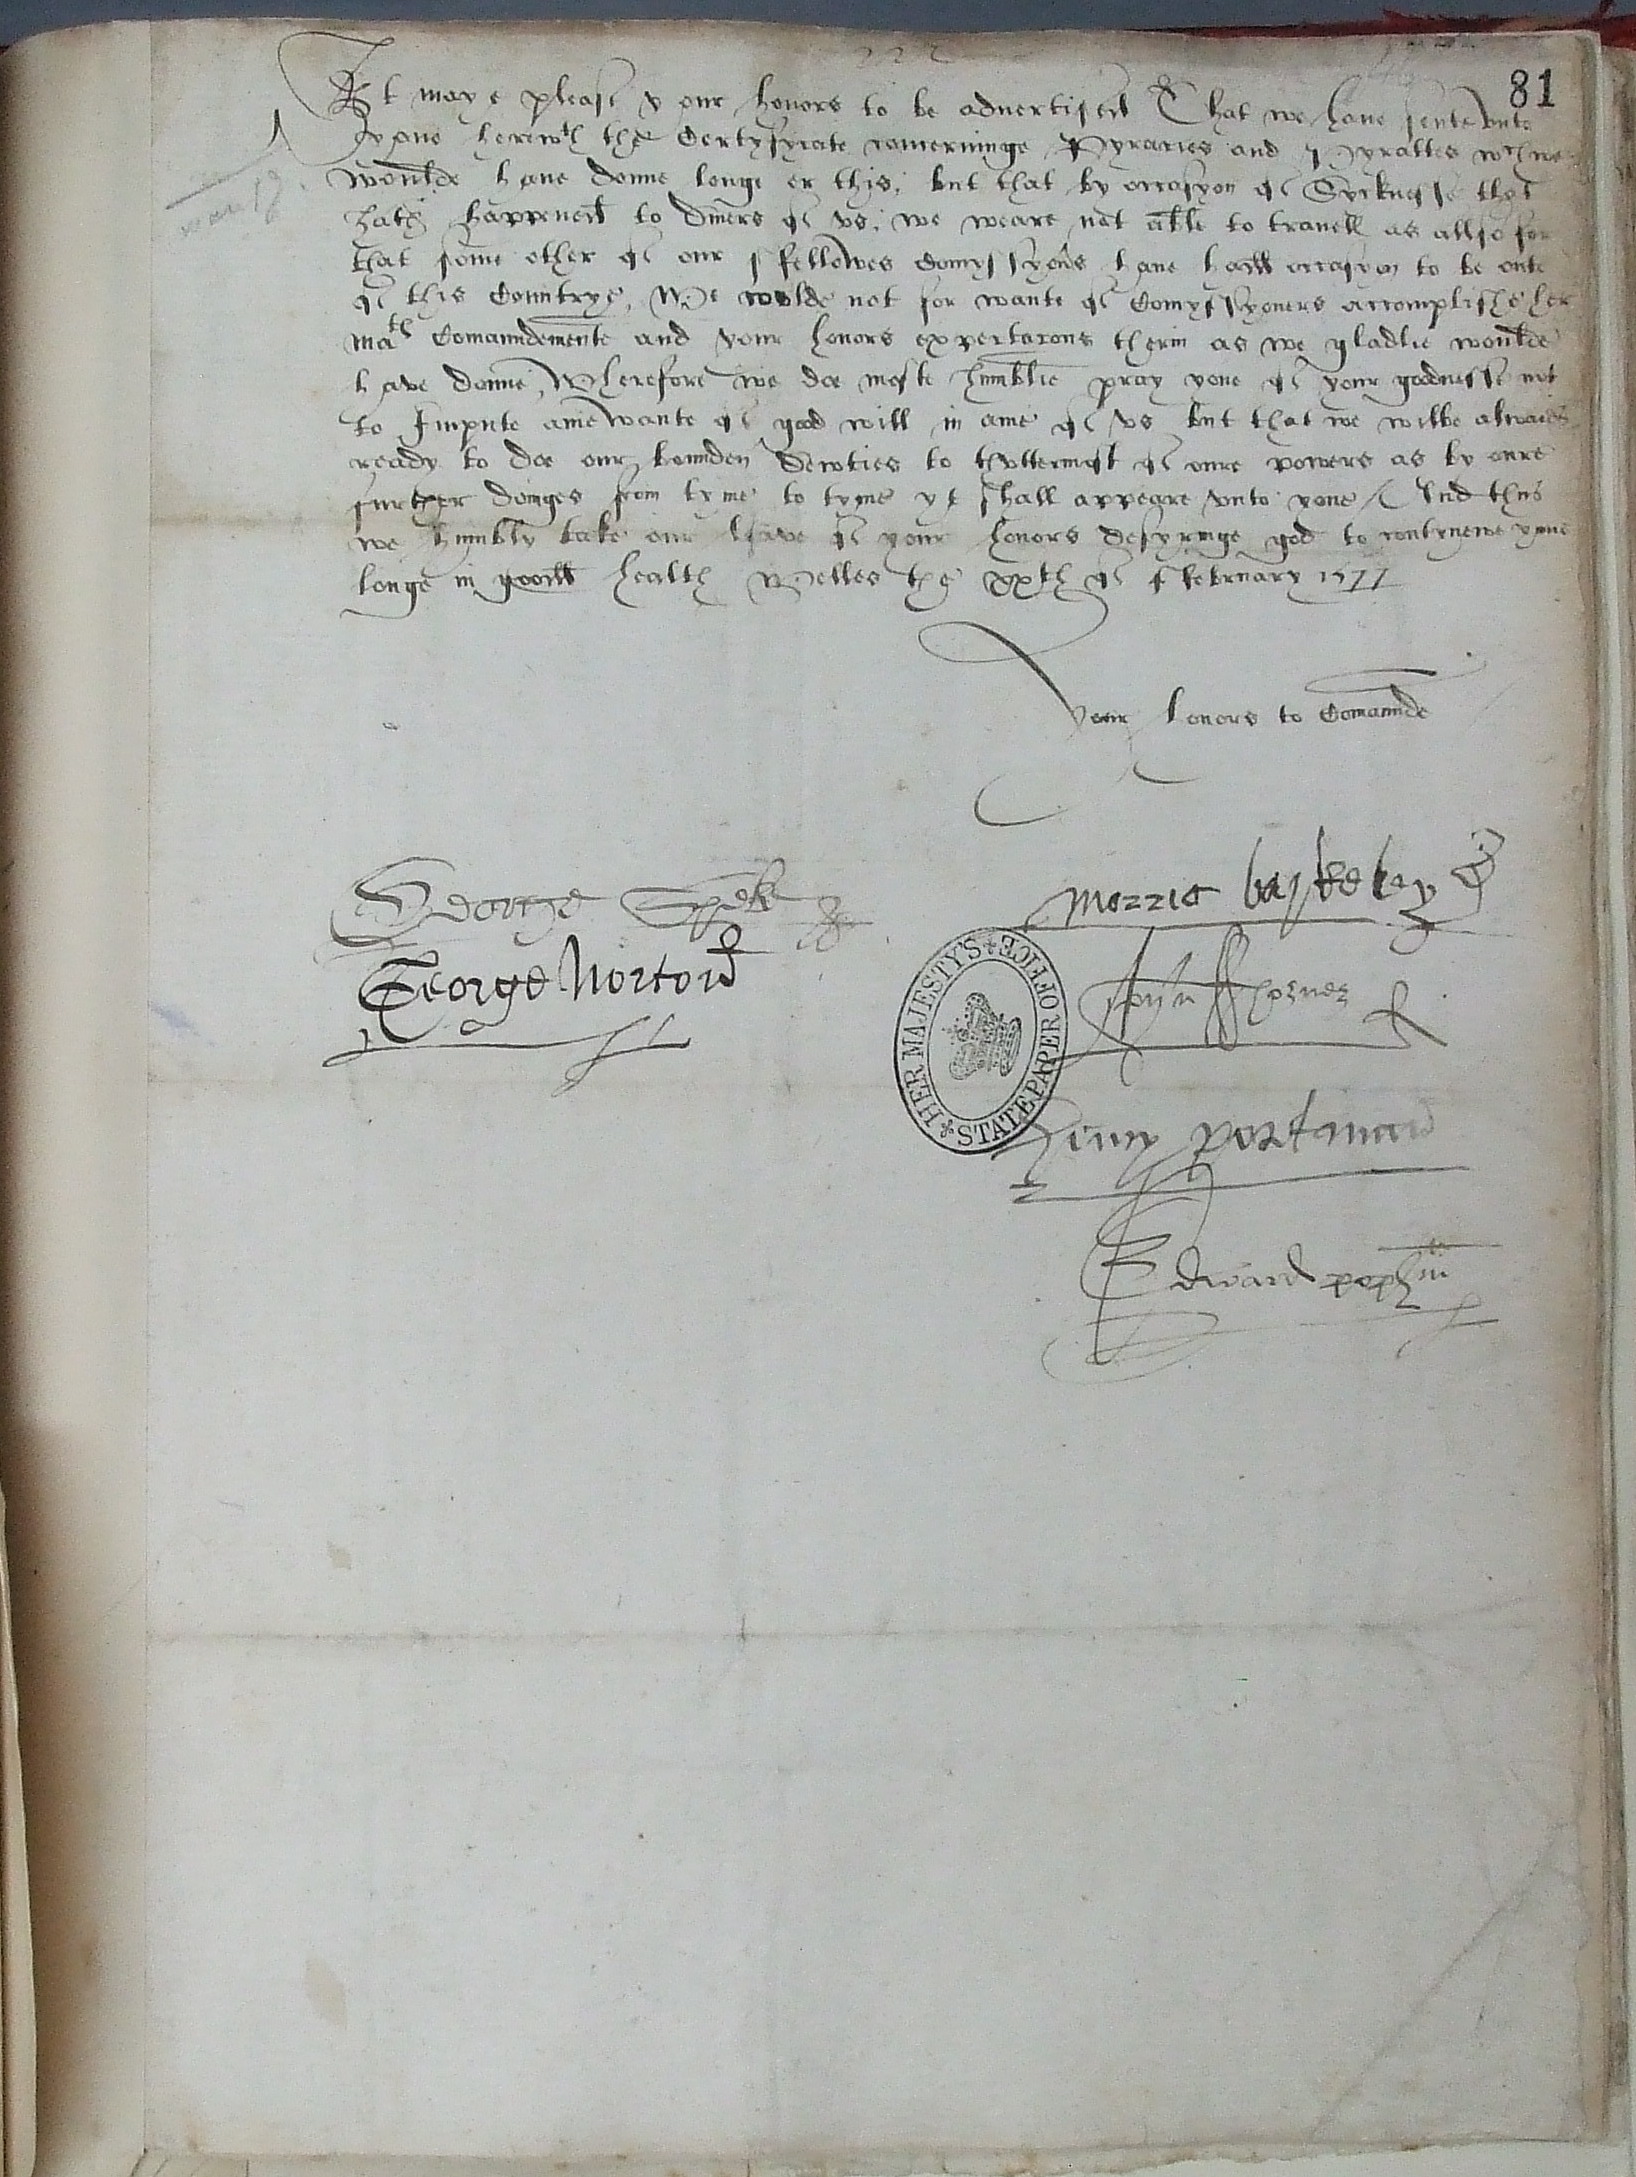 81
It maye please your honors to be advertised That we have sente vnto
youe herewth the Certyfycate concerninge Pyracies and Pyrattes wch we
woulde have donne longe er this, but that by occasyon of Sycknesse that
hath happened to divers of vs, we weare not able to travell as allso for
that some other of our ffellowes Comyssyons have hadd occasyon to be oute
of this Countrye, We colde not for wante of Comyssyoners accomplishe her
Mats Comaundemente and your honors expectacons therin as we gladlie woulde
have donne, Wherefore we doe moste humblie pray youe of your goodnesse not
to Impute anie wante of good will in anie of vs but that we wilbe alwaies
ready to doe our bounden Dewties to thuttermost of oure powers as by oure
further doinges from tyme to tyme yt shall appeare vnto youe / And thus
we humbly take our leave of your honors desyringe god to contynewe youe
longe in goodd health Welles the xxth of ffebruary 1577
Your honors to Comaunde
George Speke
Morris barkeley
George Norton
John Horner
HER MAJESTY'S STATE PAPER OFFICE
Henry portman
Edward pophm